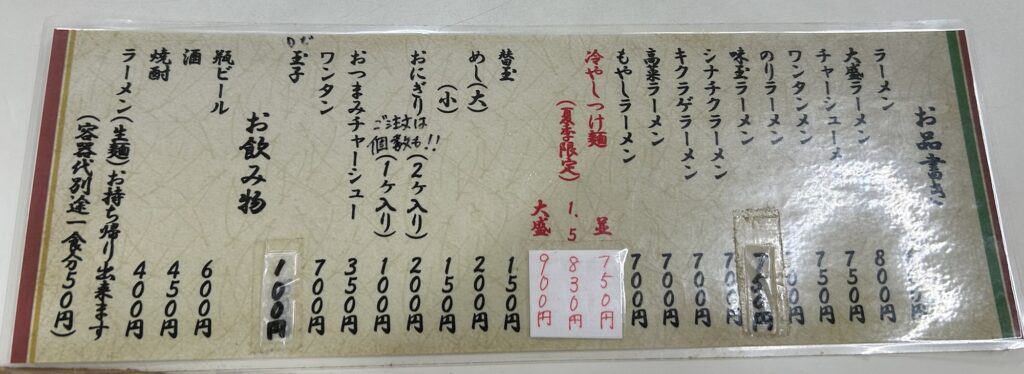 お品書き
ラーメン
大盛ラーメン 800円
チャーシューメン 750円
ワンタンメン 750円
のりラーメン 00円
味玉ラーメン 750円
シナチクラーメン 700円
キクラゲラーメン 700円
高菜ラーメン 700円
もやしラーメン 700円
冷やしつけ麺(夏季限定) 並 750円
1.5 830円
大盛 900円
替玉 150円
めし(大) 200円
(小) 150円
おにぎり(2ヶ入り) 200円
ご注文は個数も!!
(1ヶ入り) 100円
おつまみチャーシュー 350円
ワンタン 700円
ゆで玉子 100円
お飲み物
瓶ビール 600円
酒 450円
焼酎 400円
ラーメン(生麺)お持ち帰り出来ます
(容器代別途一食分50円)